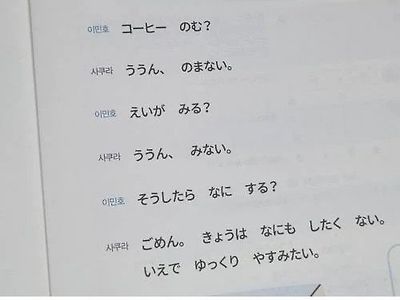 이민호 コーヒー のむ？
사쿠라 ううん、 のまない。
이민호 えいが みる？
사쿠라 ううん、 みない。
이민호 そうしたら なに する？
사쿠라 ごめん。 きょうは なにも したく ない。
いえで ゆっくり やすみたい。